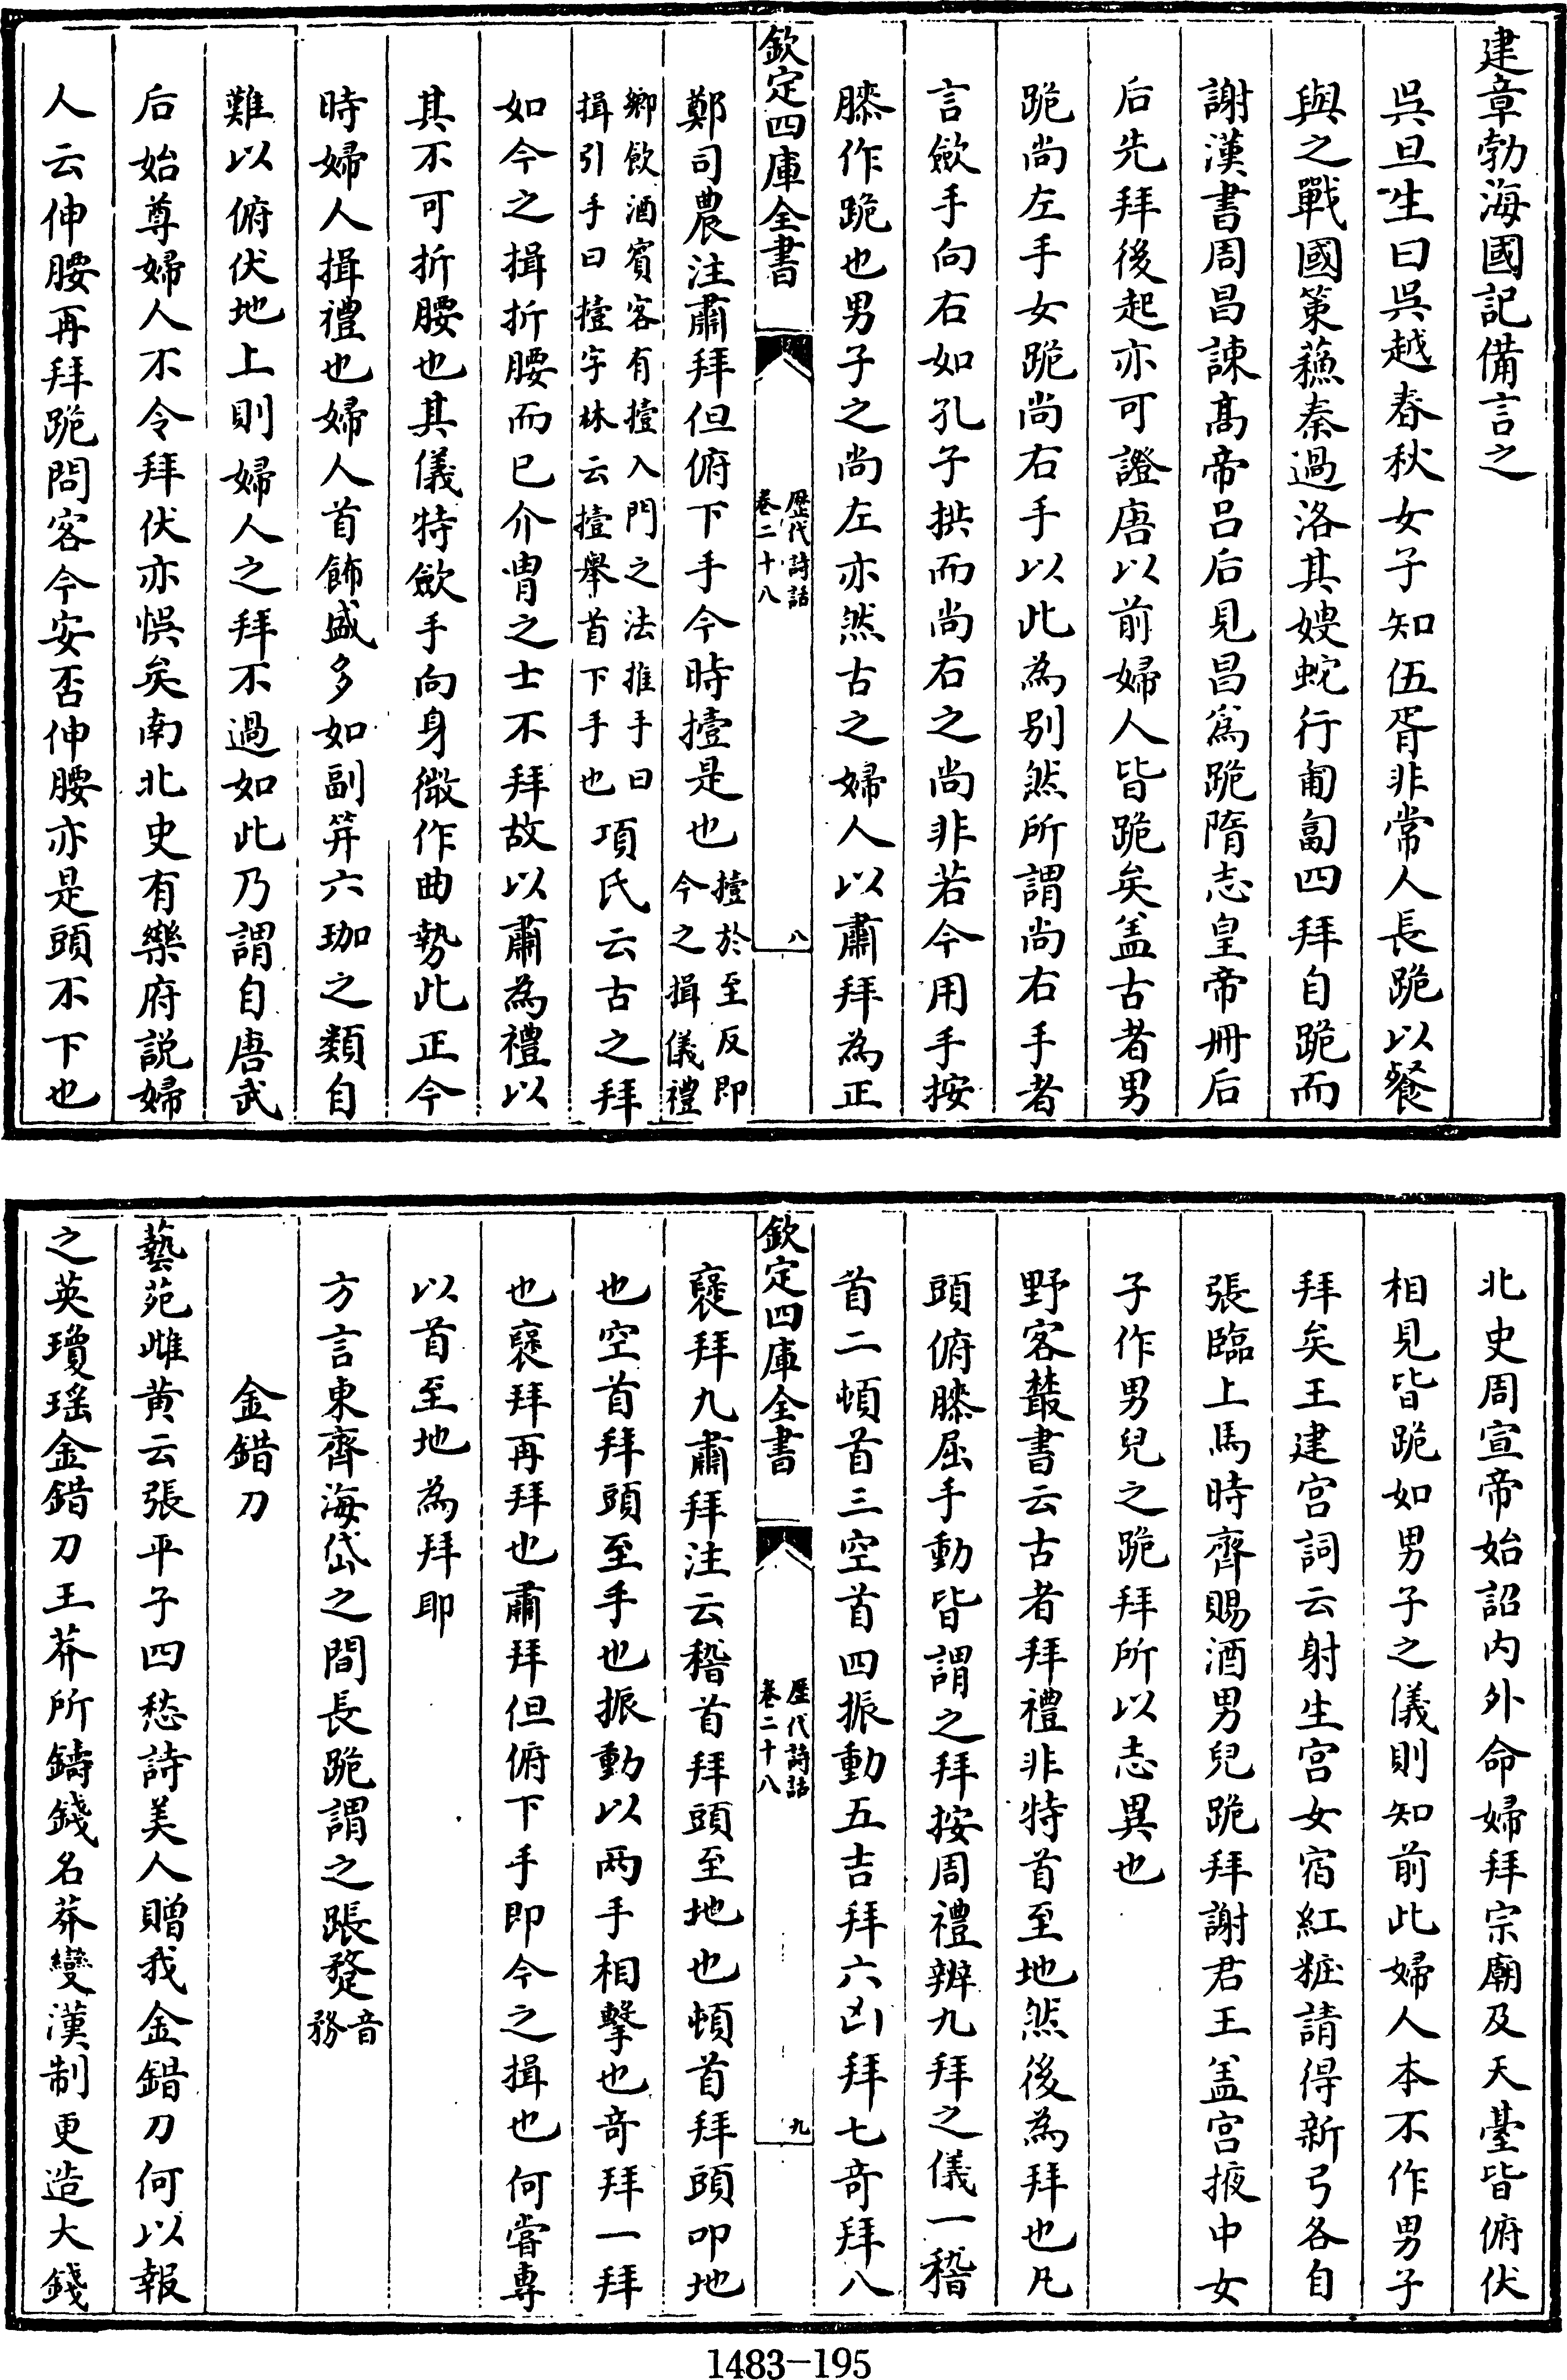 建章勃海國記備言之
吳旦生曰吳越春秋女子知伍胥非常人長跪以餐
與之戰國策蘓秦過洛其嫂蛇行匍匐四拜自跪而
謝漢書周昌諫髙帝吕后見昌爲跪隋志皇帝冊后
后先拜後起亦可證唐以前婦人皆跪矣盖古者男
跪尚左手女跪尚右手以此為别然所謂尚右手者
言歛手向右如孔子拱而尚右之尚非若今用手按
膝作跪也男子之尚左亦然古之婦人以肅拜為正
欽定四庫全書
歴代詩話
卷二十八
八
鄭司農注肅拜但俯下手今時撎是也撎於至反即
今之揖儀禮
鄉飲酒賓客有撎入門之法推手曰
揖引手曰撎字林云撎舉首下手也項氏云古之拜
如今之揖折腰而已介胄之士不拜故以肅為禮以
其不可折腰也其儀特歛手向身微作曲勢此正今
時婦人揖禮也婦人首飾盛多如副笄六珈之類自
難以俯伏地上則婦人之拜不過如此乃謂自唐武
后始尊婦人不令拜伏亦悞矣南北史有樂府説婦
人云伸腰再拜跪問客今安否伸腰亦是頭不下也
北史周宣帝始詔内外命婦拜宗廟及天臺皆俯伏
相見皆跪如男子之儀則知前此婦人本不作男子
拜矣王建宫詞云射生宫女宿紅粧請得新弓各自
張臨上馬時齊賜酒男兒跪拜謝君王盖宫掖中女
子作男兒之跪拜所以志異也
野客叢書云古者拜禮非特首至地然後為拜也凡
頭俯膝屈手動皆謂之拜按周禮辨九拜之儀一稽
首二頓首三空首四振動五吉拜六凶拜七竒拜八
欽定四庫全書
歴代詩話
卷二十八
九
襃拜九肅拜注云稽首拜頭至地也頓首拜頭叩地
也空首拜頭至手也振動以两手相擊也竒拜一拜
也襃拜再拜也肅拜但俯下手即今之揖也何甞專
以首至地為拜耶
方言東齊海岱之間長跪謂之䠆䠋音
務
金錯刀
藝苑雌黄云張平子四愁詩美人贈我金錯刀何以報
之英瓊瑶金錯刀王莽所鑄錢名莽變漢制更造大錢
1483-195